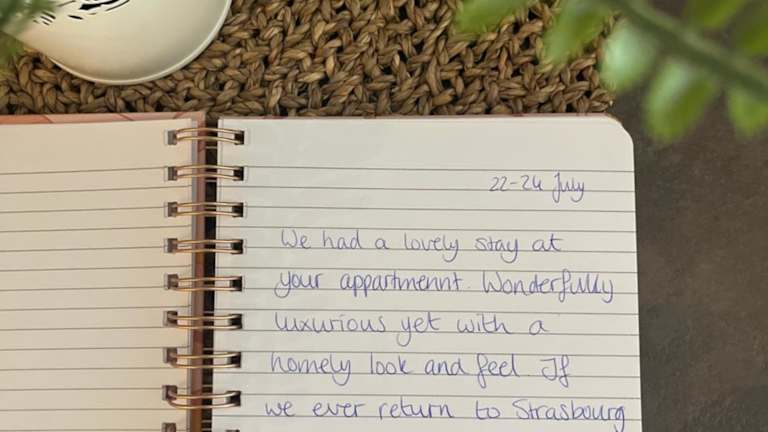 22-24 July
We had a lovely stay at
your appartmennt. Wonderfully
luxurious yet with a
homely look and feel. If
we ever return to Strasbourg